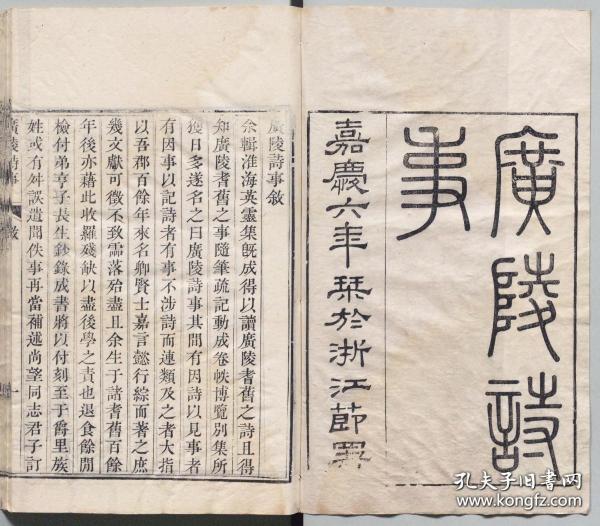 廣陵詩
事
嘉慶六年栞於浙江節署
廣陵詩事敘
余輯淮海英靈集既成得以讀廣陵耆舊之詩且得
知廣陵耆舊之事隨筆疏記動成卷帙博覽別集所
獲日多遂名之曰廣陵詩事其間有因詩以見事者
有因事以記詩者有事不涉詩而連類及之者大指
以吾郡百餘年來名卿賢士嘉言懿行綜而著之庶
幾文獻可徵不致霝落殆盡且余生于諸耆舊百餘
年後亦藉此收羅殘缺以盡後學之責也退食餘閒
檢付弟亨子長生鈔錄成書將以付刻至于爵里族
姓或有舛誤遺聞佚事再當補述尚望同志君子訂
廣陵詩事
敘
一
孔夫子旧书网
www.kongfz.com